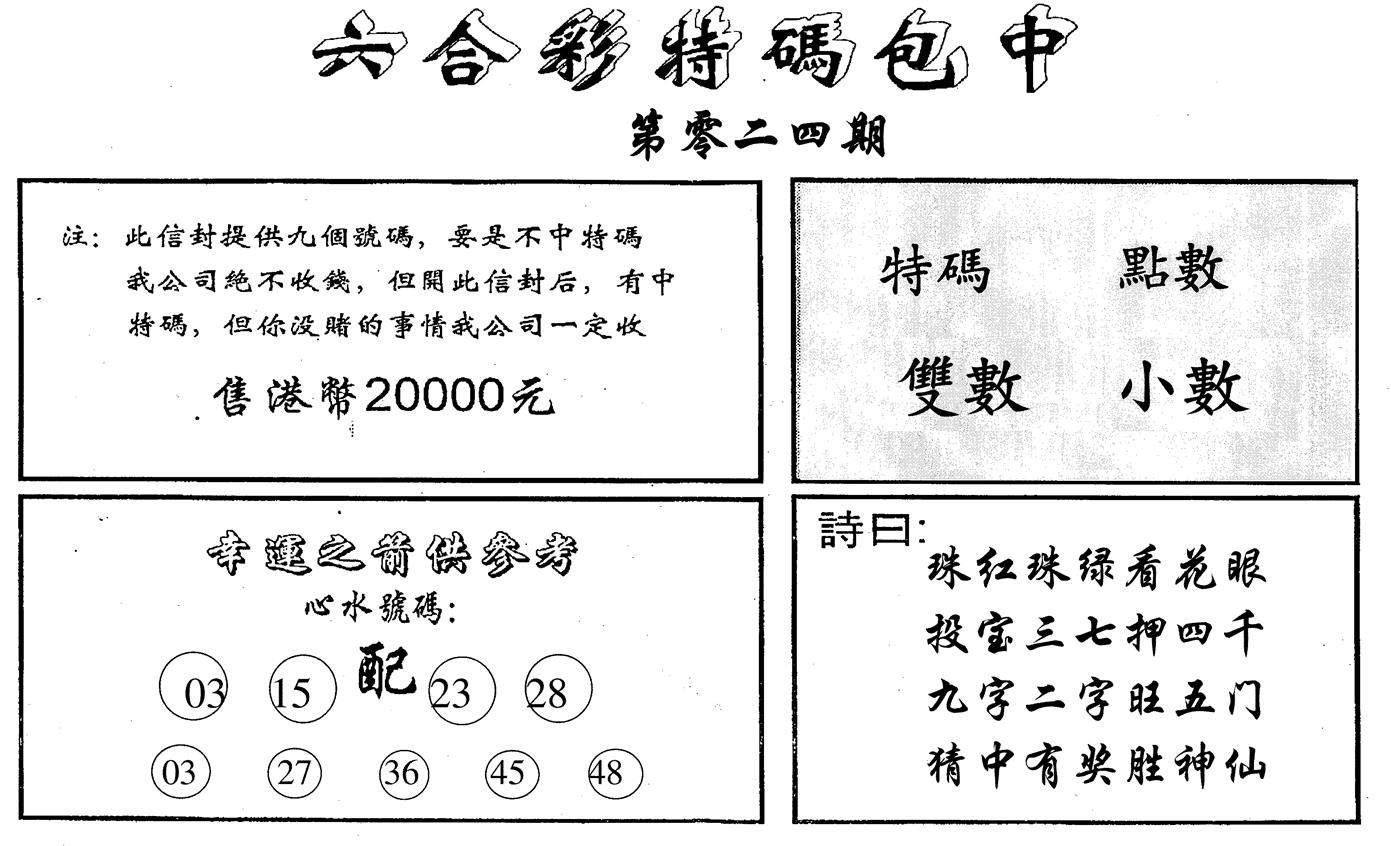 六合彩特碼包中
第零二四期
注：此信封提供九個號碼，要是不中特碼
我公司絶不收錢，但開此信封后，有中
特碼，但你没賭的事情我公司一定收
售港幣20000元
特碼 點數
雙數 小數
幸運之箭供參考
心水號碼：
03 15 配 23 28
03 27 36 45 48
詩曰：
珠红珠绿看花眼
投宝三七押四千
九字二字旺五门
猜中有奖胜神仙